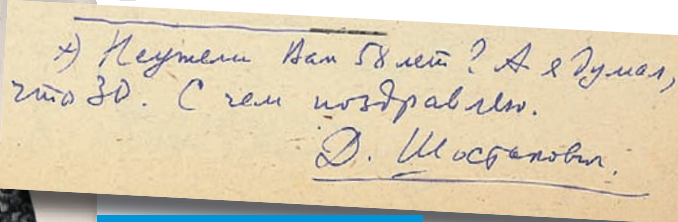 х) Неужели Вам 58 лет? А я думал,
что 30. С чем поздравляю.
Д. Шостакович.